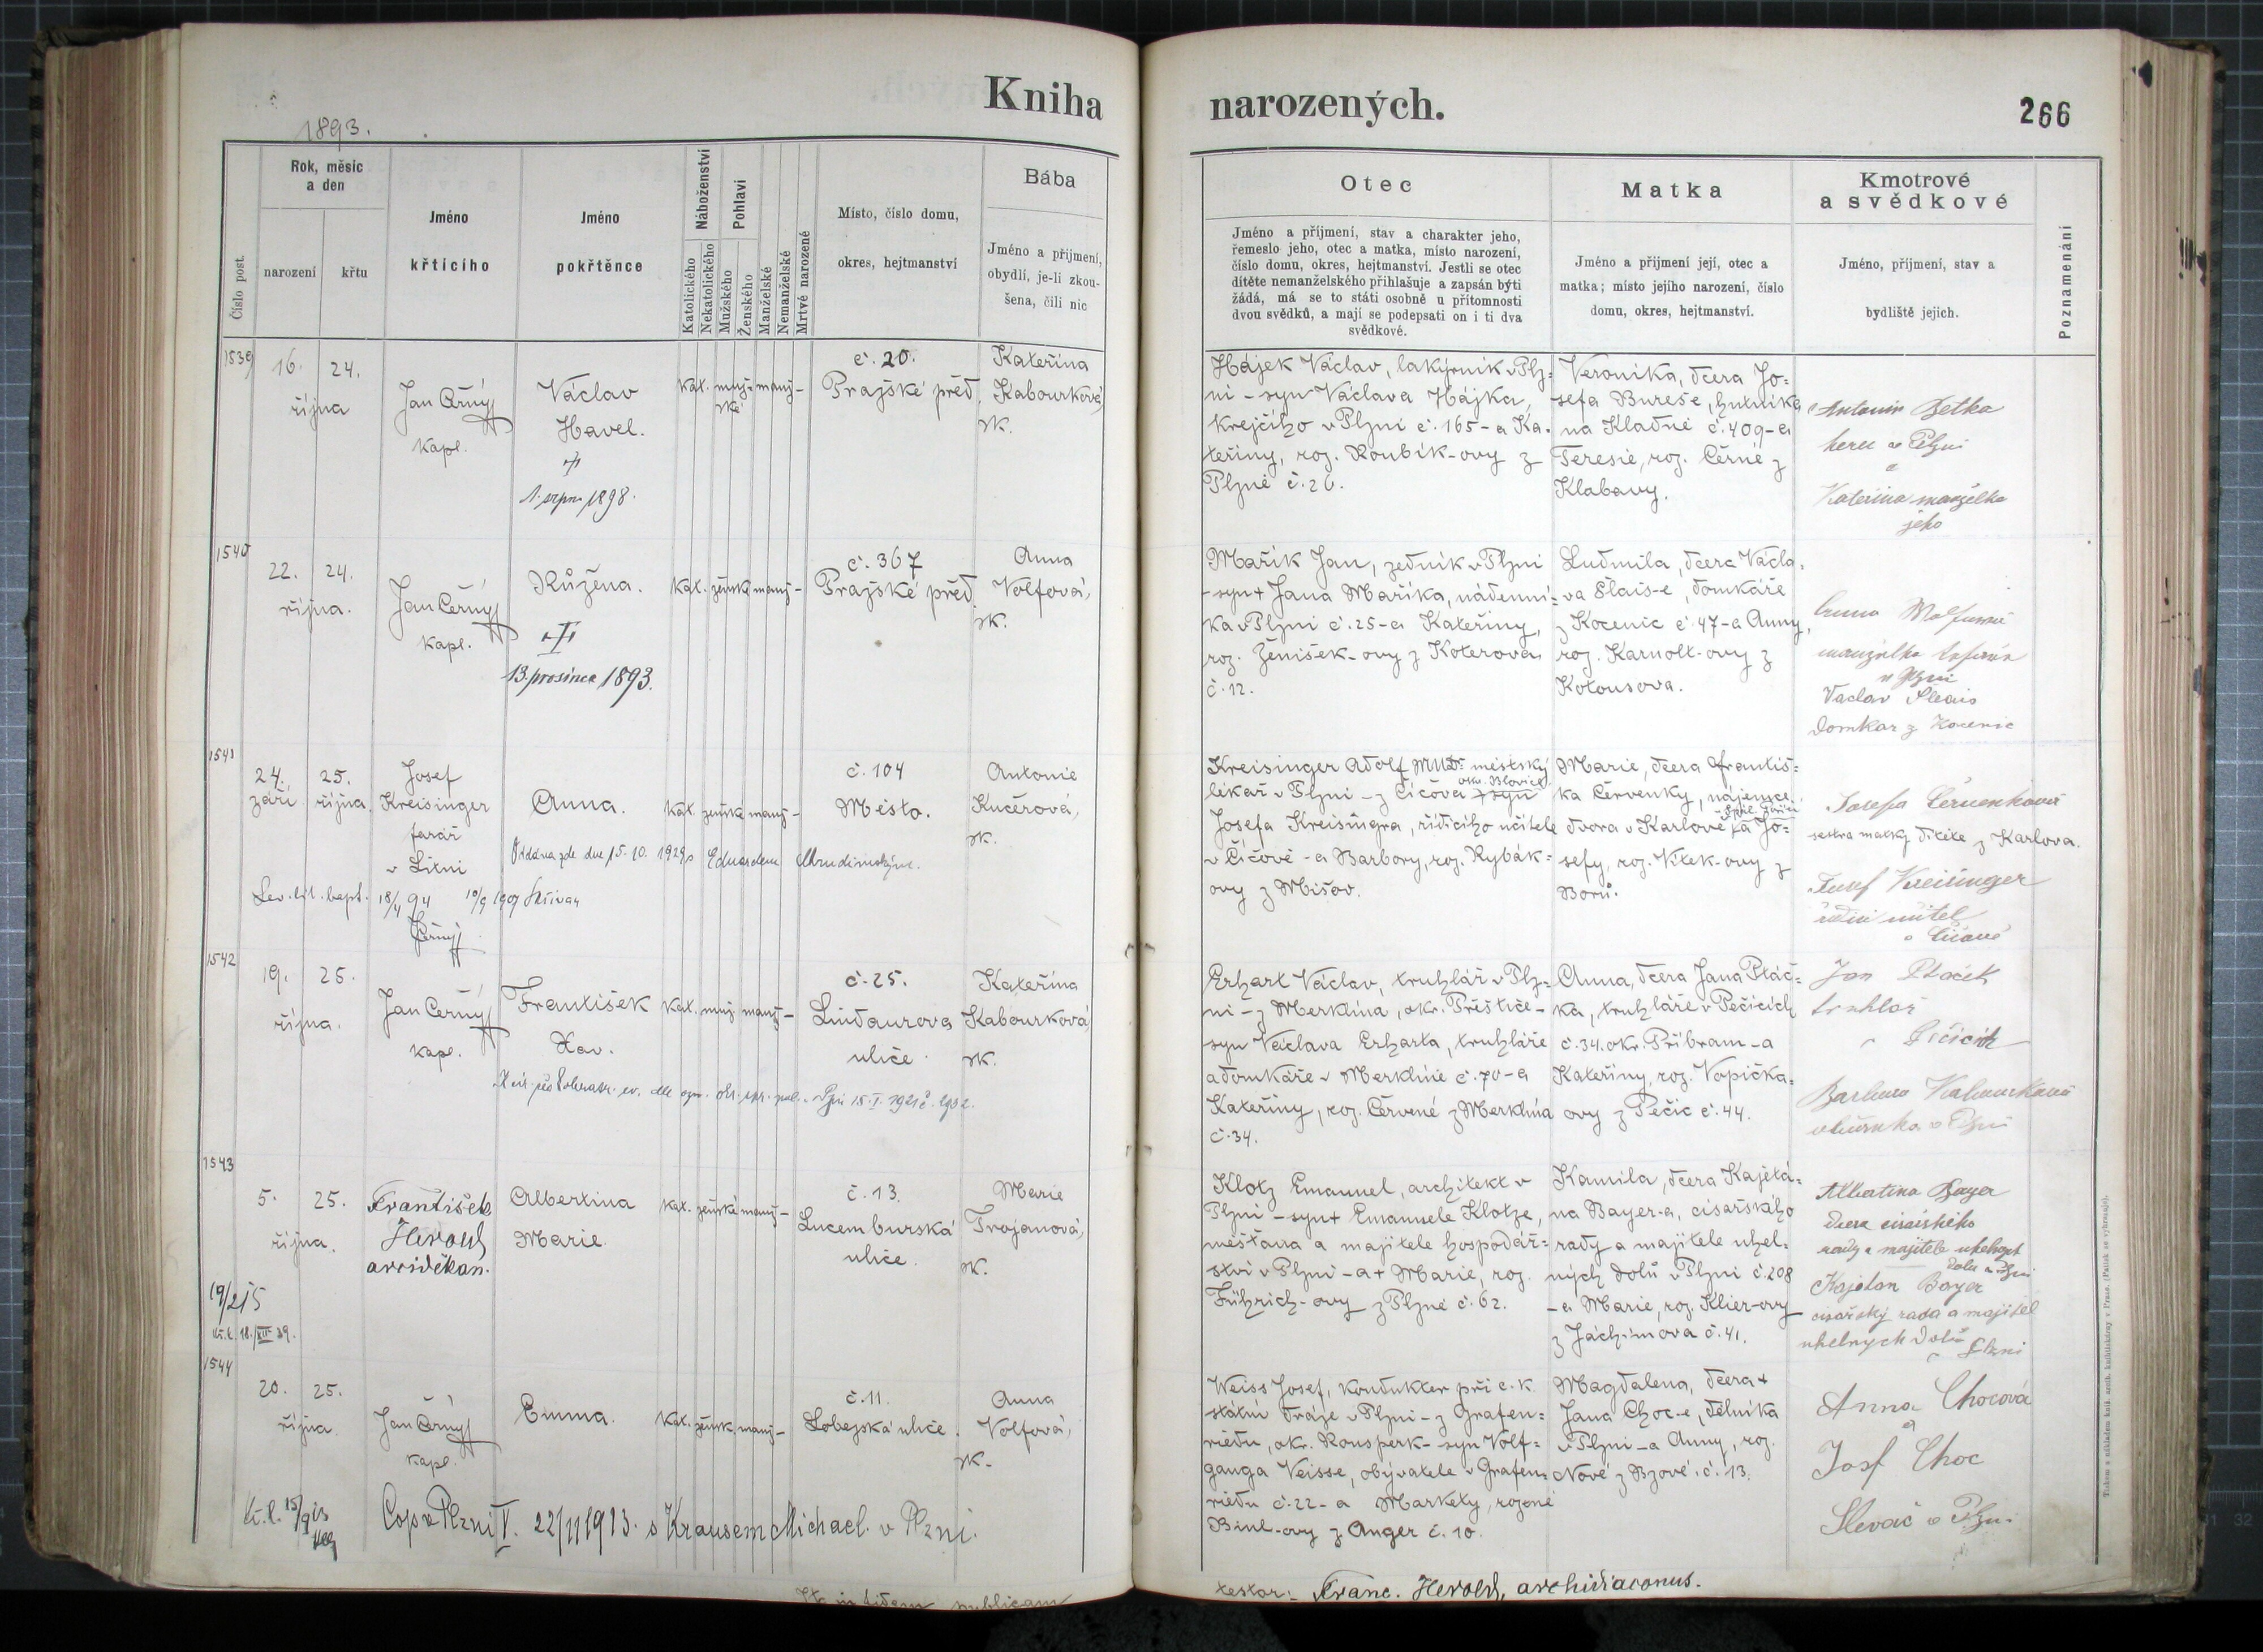 Kniha
1893.
Rok, měsíc
a den
narození
křtu
Číslo post.
Jméno
křtícího
Jméno
pokřtěnce
Náboženství
Katolického
Nekatolického
Pohlaví
Mužského
Ženského
Manželské
Nemanželské
Mrtvě narozené
Místo, číslo domu,
okres, hejtmanství
Bába
Jméno a přijmení,
obydlí, je-li zkou-
šena, čili nic
1539
16. 24.
října
Jan Černý
kapl.
Václav
Havel.
1. srpn 1898.
kat. muž- manž-
ské
č. 20.
Pražské před.
Kateřina
Kabourková,
zk.
1540
22. 24.
října.
Jan Černý
kapl.
Růžena.
13. prosince 1893.
kat. ženské manž-
č. 367
Pražské před.
Anna
Volfová,
zk.
1541
24. 25.
září října.
Josef
Kreisinger
farář
v Litni
Anna.
kat. ženské manž-
č. 104
Město.
Antonie
Kučerová,
zk.
Oddána zde dne 15. 10. 1929 s Eduardem
Lev. lit. bapt. 18/4 94 10/9 1909
Černý
1542
19. 25.
října.
Jan Černý
kapl.
František
Xav.
kat. muž. manž-
č. 25.
Lindaurova
ulice.
Kateřina
Kabourková
zk.
1543
5. 25.
října.
František
Herold
arciděkan.
Albertina
Marie.
kat. ženské manž-
č. 13.
Lucemburská
ulice.
Marie
Trojanová,
zk.
19/2 15
18./XII 39.
1544
20. 25.
října.
Jan Černý
kapl.
Emma.
kat. žensk. manž-
č. 11.
Lobezská ulice.
Anna
Volfová,
zk.
Kř. l. 15/9 13
Cop. v Plzni V. 22/11 1913. s Krausem Michael. v Plzni.
In fidem publicam
narozených.
266
Otec
Jméno a příjmení, stav a charakter jeho,
řemeslo jeho, otec a matka, místo narození,
číslo domu, okres, hejtmanství. Jestli se otec
dítěte nemanželského přihlašuje a zapsán býti
žádá, má se to státi osobně u přítomnosti
dvou svědků, a mají se podepsati on i ti dva
svědkové.
Matka
Jméno a přijmení její, otec a
matka; místo jejího narození, číslo
domu, okres, hejtmanství.
Kmotrové
a svědkové
Jméno, přijmení, stav a
bydliště jejich.
Poznamenání
Hájek Václav, lakýrník v Plz-
ni - syn Václava Hájka,
krejčího v Plzni č. 165 - a Ka-
teřiny, roz. Roubík-ovy z
Plzně č. 26.
Veronika, dcera Jo-
sefa Bureše, hutníka
na Kladně č. 409 - a
Teresie, roz. Černé z
Klabavy.
Antonín Petka
v Plzni
a
Kateřina manželka
jeho
Mařík Jan, zedník v Plzni
- syn + Jana Maříka, nádenní-
ka v Plzni č. 25 - a Kateřiny,
roz. Ženíšek-ovy z Koterova
č. 12.
Ludmila, dcera Václa-
va Šlais-e, domkáře
z Kocenic č. 47 - a Anny,
roz. Karnolt-ovy z
Kotousova.
manželka
v Plzni
Vaclav Šlais
domkar z Kocenic
Kreisinger Adolf MUDr městský
lékař v Plzni - z Číčova okr. Blovice + syn
Josefa Kreisingra, řídícího učitele
v Číčově - a Barbory, roz. Rybák-
ovy z Mišov.
Marie, dcera Františ-
ka Červenky, nájemce
dvora v Karlově - a Jo-
sefy, roz. Vítek-ovy z
Borů.
Josefa Červenková
sestra matky dítěte z Karlova.
Josef Kreisinger
řídící učitel
v Číčově
Erhart Václav, truhlář v Plz-
ni - z Merklína, okr. Přeštice -
syn Václava Erharta, truhláře
a domkáře v Merklíně č. 70 - a
Kateřiny, roz. Červené z Merklína
č. 34.
Anna, dcera Jana Ptáč-
ka, truhláře v Pečicích
č. 34. okr. Příbram - a
Kateřiny, roz. Vopička-
ovy z Pečic č. 44.
Jan Ptáček
truhlář
v Pečicích
Barbora Kabourková
v Plzni
Klotz Emanuel, architekt v
Plzni - syn + Emanuele Klotze,
měšťana a majitele hospodář-
ství v Plzni - a + Marie, roz.
Führich-ovy z Plzně č. 62.
Kamila, dcera Kajetá-
na Bayer-a, císařského
rady a majitele uhel-
ných dolů v Plzni č. 208
- a Marie, roz. Klier-ovy
z Jáchimova č. 41.
Albertina Bayer
dcera císařského
rady a majitele uhelných
dolů v Plzni
Kajetan Bayer
císařský rada a majitel
uhelnych dolů
v Plzni
Weiss Josef, kondukter při c. k.
státní dráze v Plzni - z Grafen-
riedu, okr. Ronsperk - syn Volf-
ganga Veisse, obývatele v Grafen-
riedu č. 22 - a Markety, rozené
Binl-ovy z Anger č. 10.
Magdalena, dcera +
Jana Choc-e, dělníka
v Plzni - a Anny, roz.
Nové z Bzové č. 13.
Anna Chocová
a
Josf Choc
Slevač v Plzni
testor: Franc. Herold, archidiaconus.